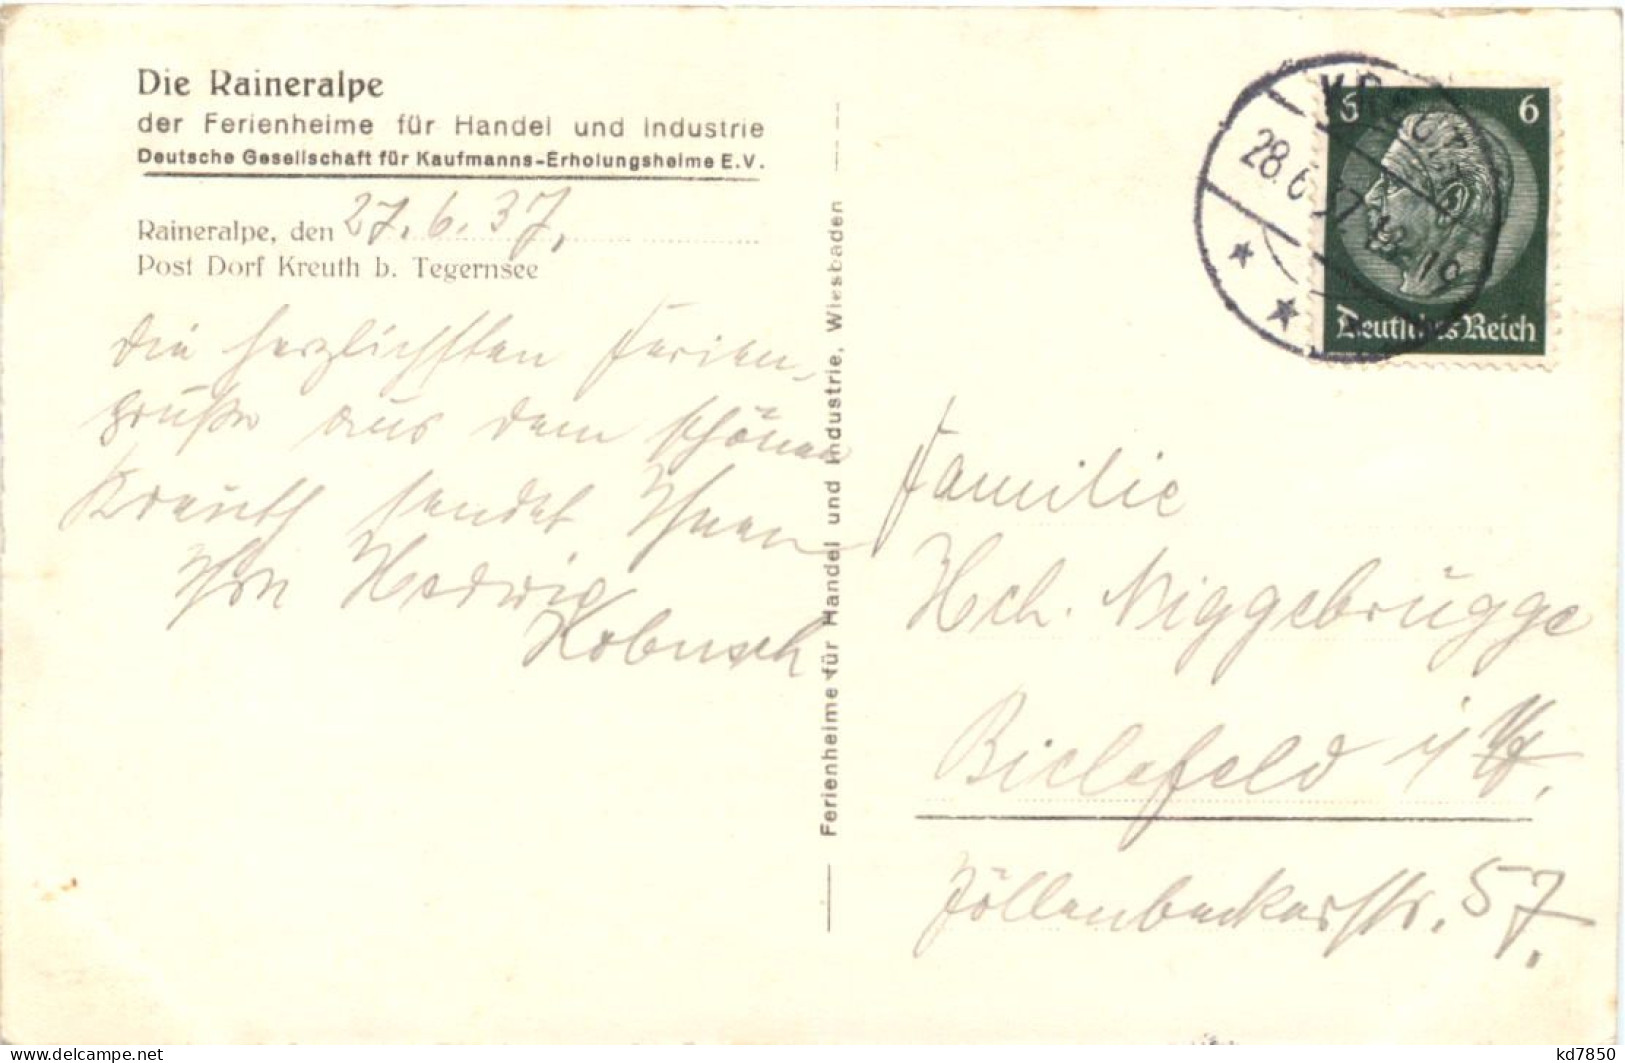 Die Raineralpe
der Ferienheime für Handel und Industrie
Deutsche Gesellschaft für Kaufmanns-Erholungsheime E.V.
Raineralpe, den 27.6.37.
Post Dorf Kreuth b. Tegernsee
Die herzlichsten Ferien-
grüße aus dem schönen
Kreuth sendet Ihnen
Ihre Hedwig
Kobusch
Ferienheime für Handel und Industrie, Wiesbaden
KREUTH
28.6.37
6 6
Deutsches Reich
Familie
Hch. Niggebrügge
Bielefeld i/W.
Jöllenbeckerstr. 57.
kd7850
delcampe.net